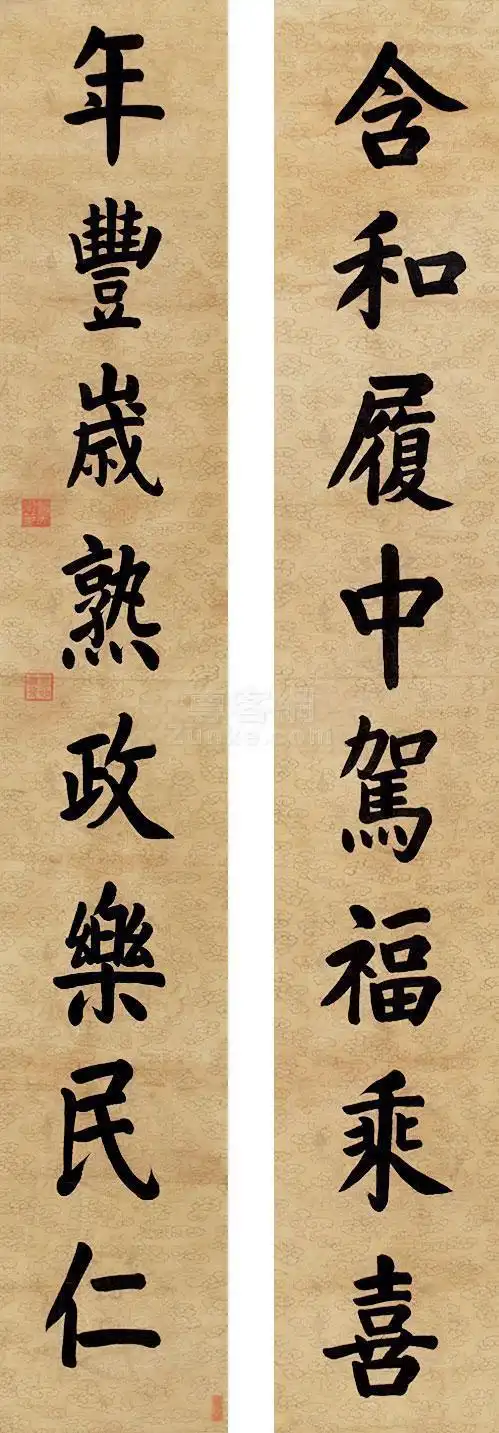 含和履中駕福乘喜
年豐歲熟政樂民仁
尊客網
Zunke.com